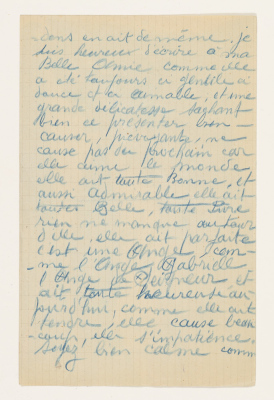 dans en ait de même. je
suis heureux d'écrire a ma
Belle comme elle
a été toujours si gentile si
douce et si aimable, et une
grande délicatesse sachant
bien ce présenter bien
causer, ne
cause pas du prochain car
elle aime le monde
elle ait toute Bonne, et
aussi admirable elle ait
toutes Belle, toute Pure
rien ne manque autour
d'elle, elle ait parfaite
c'est une Ange, com-
-me l'Ange Gabriell
l'Ange de Seigneur et
ait toute heureuse au
jourd'hui, comme elle ait
tendre, elle cause beau
coup, elle s'impatience.
Soyez bien calme comm